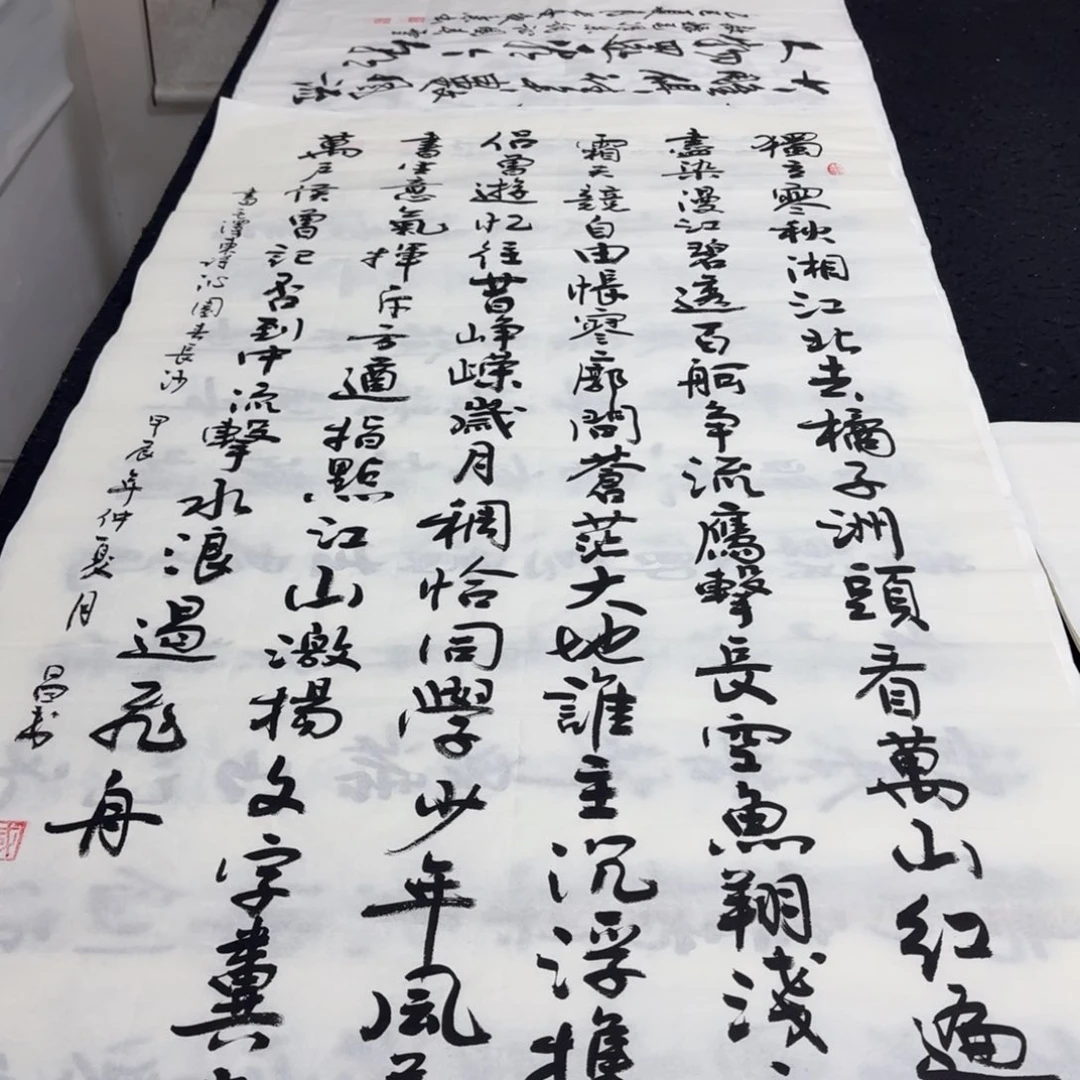 獨立寒秋湘江北去橘子洲頭看萬山紅遍
盡染漫江碧透百舸争流鷹擊長空魚翔淺
霜天競自由悵寥廓問蒼茫大地誰主沉浮攜
侣曾遊忆往昔峥嵘歲月稠恰同學少年風
書生意氣揮斥方遒指點江山激揚文字糞
萬户侯曾記否到中流擊水浪遏飛舟
書毛澤東詞沁園春長沙 甲辰年仲夏月 昌